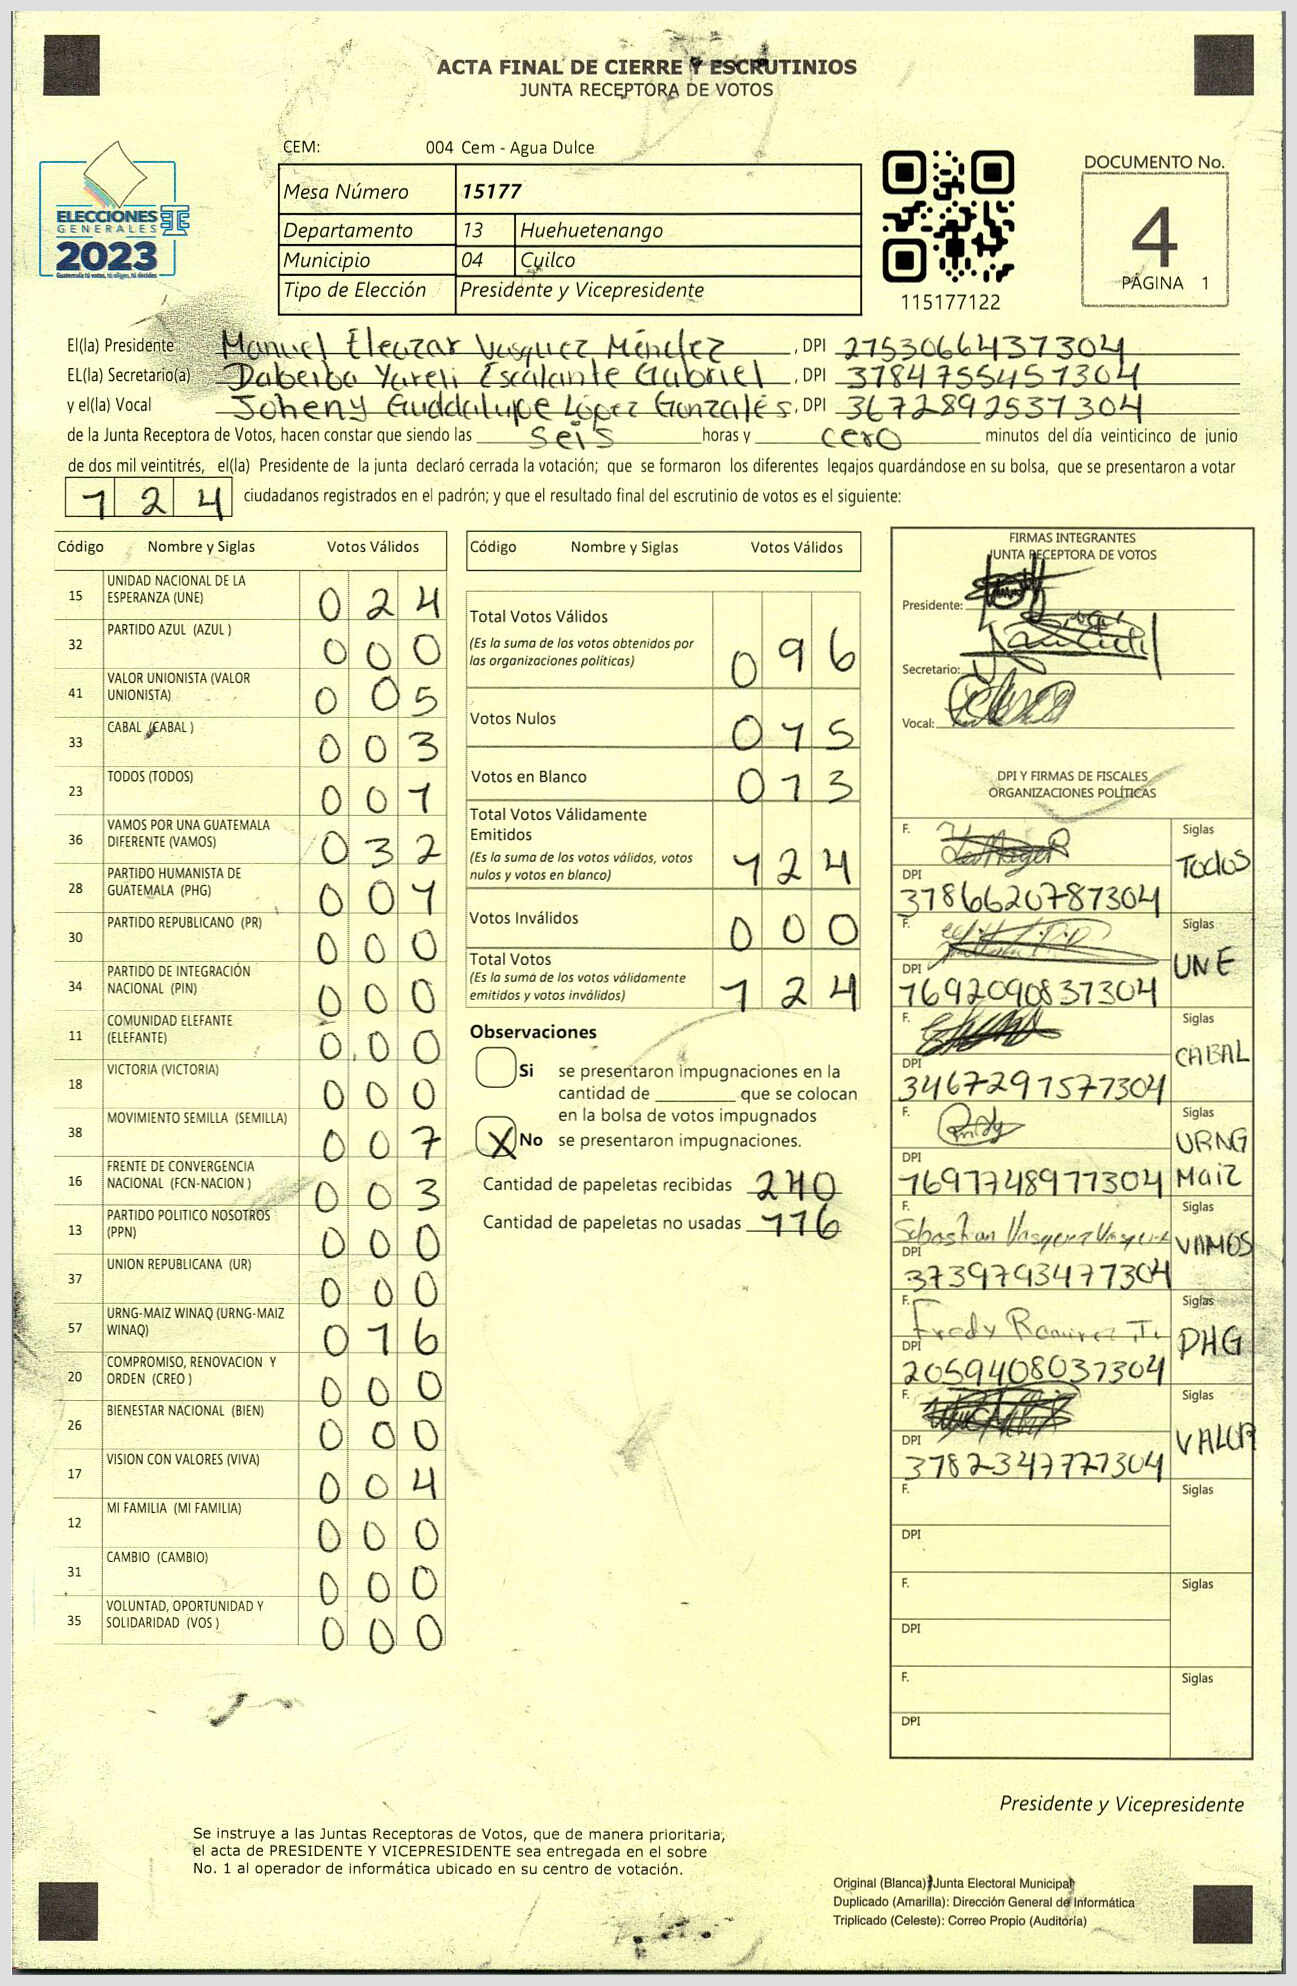 ACTA FINAL DE CIERRE Y ESCRUTINIOS
JUNTA RECEPTORA DE VOTOS
CEM: 004 Cem - Agua Dulce
ELECCIONES
GENERALES
2023
Guatemala tú votas, tú eliges, tú decides
Mesa Número 15177
Departamento 13 Huehuetenango
Municipio 04 Cuilco
Tipo de Elección Presidente y Vicepresidente
115177122
DOCUMENTO No.
4
PÁGINA 1
El(la) Presidente Manuel Eleazar Vasquez Méndez, DPI 2753066431304
EL(la) Secretario(a) Dabeiba Yareli Escalante Gabriel, DPI 3784755451304
y el(la) Vocal Joheny Guadalupe López Gonzalés, DPI 3672892531304
de la Junta Receptora de Votos, hacen constar que siendo las seis horas y cero minutos del día veinticinco de junio
de dos mil veintitrés, el(la) Presidente de la junta declaró cerrada la votación; que se formaron los diferentes legajos quardándose en su bolsa, que se presentaron a votar
124 ciudadanos registrados en el padrón; y que el resultado final del escrutinio de votos es el siguiente:
Código Nombre y Siglas Votos Válidos
15 UNIDAD NACIONAL DE LA ESPERANZA (UNE) 024
32 PARTIDO AZUL (AZUL ) 000
41 VALOR UNIONISTA (VALOR UNIONISTA) 005
33 CABAL (CABAL ) 003
23 TODOS (TODOS) 001
36 VAMOS POR UNA GUATEMALA DIFERENTE (VAMOS) 032
28 PARTIDO HUMANISTA DE GUATEMALA (PHG) 001
30 PARTIDO REPUBLICANO (PR) 000
34 PARTIDO DE INTEGRACIÓN NACIONAL (PIN) 000
11 COMUNIDAD ELEFANTE (ELEFANTE) 000
18 VICTORIA (VICTORIA) 000
38 MOVIMIENTO SEMILLA (SEMILLA) 007
16 FRENTE DE CONVERGENCIA NACIONAL (FCN-NACION ) 003
13 PARTIDO POLITICO NOSOTROS (PPN) 000
37 UNION REPUBLICANA (UR) 000
57 URNG-MAIZ WINAQ (URNG-MAIZ WINAQ) 016
20 COMPROMISO, RENOVACION Y ORDEN (CREO ) 000
26 BIENESTAR NACIONAL (BIEN) 000
17 VISION CON VALORES (VIVA) 004
12 MI FAMILIA (MI FAMILIA) 000
31 CAMBIO (CAMBIO) 000
35 VOLUNTAD, OPORTUNIDAD Y SOLIDARIDAD (VOS ) 000
Código Nombre y Siglas Votos Válidos
Total Votos Válidos 096
(Es la suma de los votos obtenidos por
las organizaciones políticas)
Votos Nulos 015
Votos en Blanco 013
Total Votos Válidamente
Emitidos 124
(Es la suma de los votos válidos, votos
nulos y votos en blanco)
Votos Inválidos 000
Total Votos 124
(Es la suma de los votos válidamente
emitidos y votos inválidos)
Observaciones
Si se presentaron impugnaciones en la
cantidad de ________ que se colocan
en la bolsa de votos impugnados
X No se presentaron impugnaciones.
Cantidad de papeletas recibidas 240
Cantidad de papeletas no usadas 116
FIRMAS INTEGRANTES
JUNTA RECEPTORA DE VOTOS
Presidente:
Secretario:
Vocal:
DPI Y FIRMAS DE FISCALES
ORGANIZACIONES POLÍTICAS
F. Siglas
TODOS
DPI
3786620781304
F. Siglas
UNE
DPI
1692090831304
F. Siglas
CABAL
DPI
3467291571304
F. Siglas
URNG
DPI
MAIZ
F. Sebastian Vasquez Vasquez Siglas
VAMOS
DPI
F. Fredy Ramirez Siglas
PHG
DPI
2059408031304
F. Siglas
VALOR
DPI
F. Siglas
DPI
F. Siglas
DPI
F. Siglas
DPI
Presidente y Vicepresidente
Se instruye a las Juntas Receptoras de Votos, que de manera prioritaria,
el acta de PRESIDENTE Y VICEPRESIDENTE sea entregada en el sobre
No. 1 al operador de informática ubicado en su centro de votación.
Original (Blanca): Junta Electoral Municipal
Duplicado (Amarilla): Dirección General de Informática
Triplicado (Celeste): Correo Propio (Auditoría)